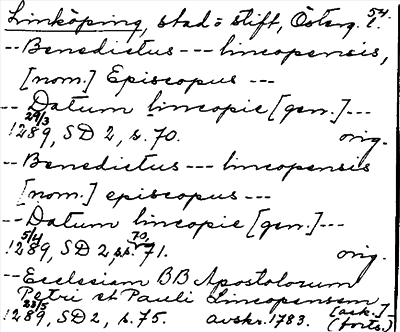 Linköping, stad = stift, Österg. l. 54.
-- Benedictus --- lincopensis,
[nom.] Episcopus ---
-- Datum lincopie [gen.] ---
29/3
1289, SD 2, s. 70. orig.
-- Benedictus --- lincopensis
[nom.] episcopus ---
-- Datum lincopie [gen.] ---
5/4 70,
1289, SD 2, s. 71. orig.
-- Ecclesiam BB Apostolorum
Petri et Pauli Lincopensem [ack.]
23/5
1289, SD 2, s. 75. avskr. 1783. (forts.)